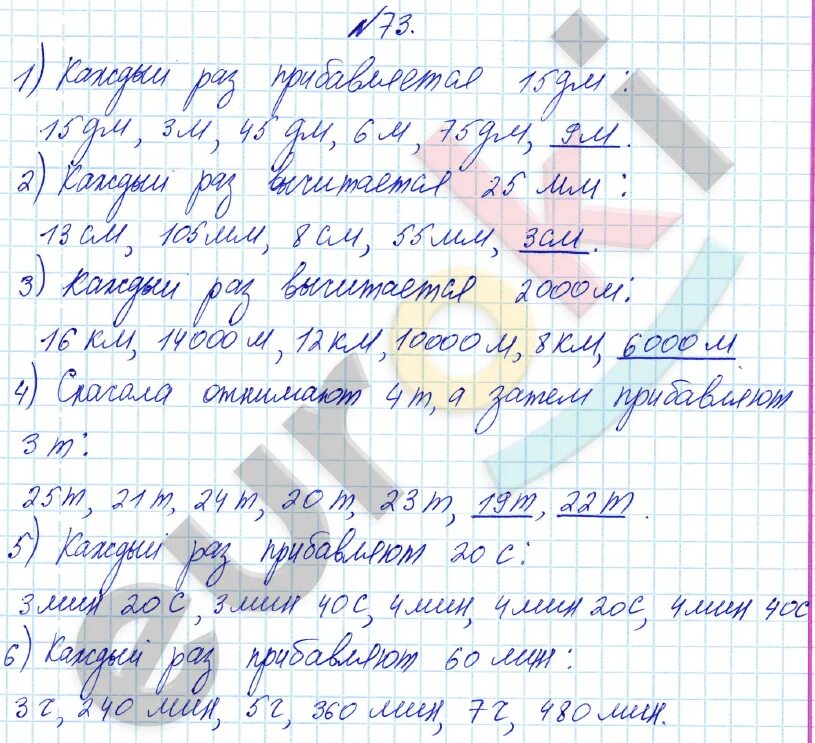 №73.
1) Каждый раз прибавляется 15дм:
15дм, 3м, 45дм, 6м, 75дм, 9м.
2) Каждый раз вычитается 25 мм:
13см, 105мм, 8см, 55мм, 3см.
3) Каждый раз вычитается 2000м:
16 км, 14000м, 12км, 10000м, 8км, 6000м
4) Сначала отнимают 4т, а затем прибавляют
3т:
25т, 21т, 24т, 20т, 23т, 19т, 22т.
5) Каждый раз прибавляют 20с:
3мин 20с, 3мин 40с, 4мин, 4мин 20с, 4мин 40с
6) Каждый раз прибавляют 60 мин:
3ч, 240 мин, 5ч, 360 мин, 7ч, 480 мин.
euroki